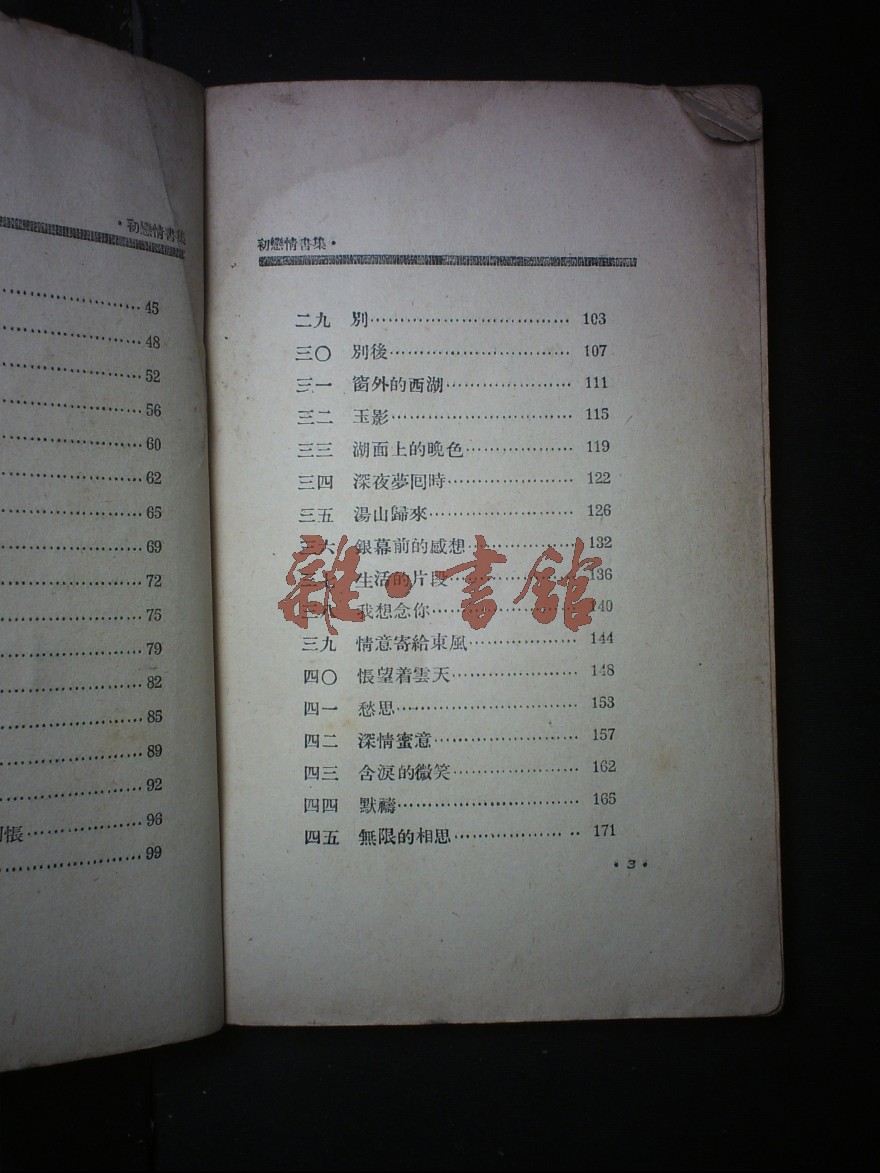 ·初戀情書集
45
48
52
56
60
62
65
69
72
75
79
82
85
89
92
悵……………………96
99
初戀情書集·
二九 別…………………………… 103
三〇 別後………………………… 107
三一 窗外的西湖………………… 111
三二 玉影………………………… 115
三三 湖面上的晚色……………… 119
三四 深夜夢囘時………………… 122
三五 湯山歸來…………………… 126
三六 銀幕前的感想……………… 132
三七 生活的片段………………… 136
三八 我想念你…………………… 140
三九 情意寄給東風……………… 144
四〇 悵望着雲天………………… 148
四一 愁思………………………… 153
四二 深情蜜意…………………… 157
四三 含淚的微笑………………… 162
四四 默禱………………………… 165
四五 無限的相思…………… ‥ 171
雜·書館
·3·